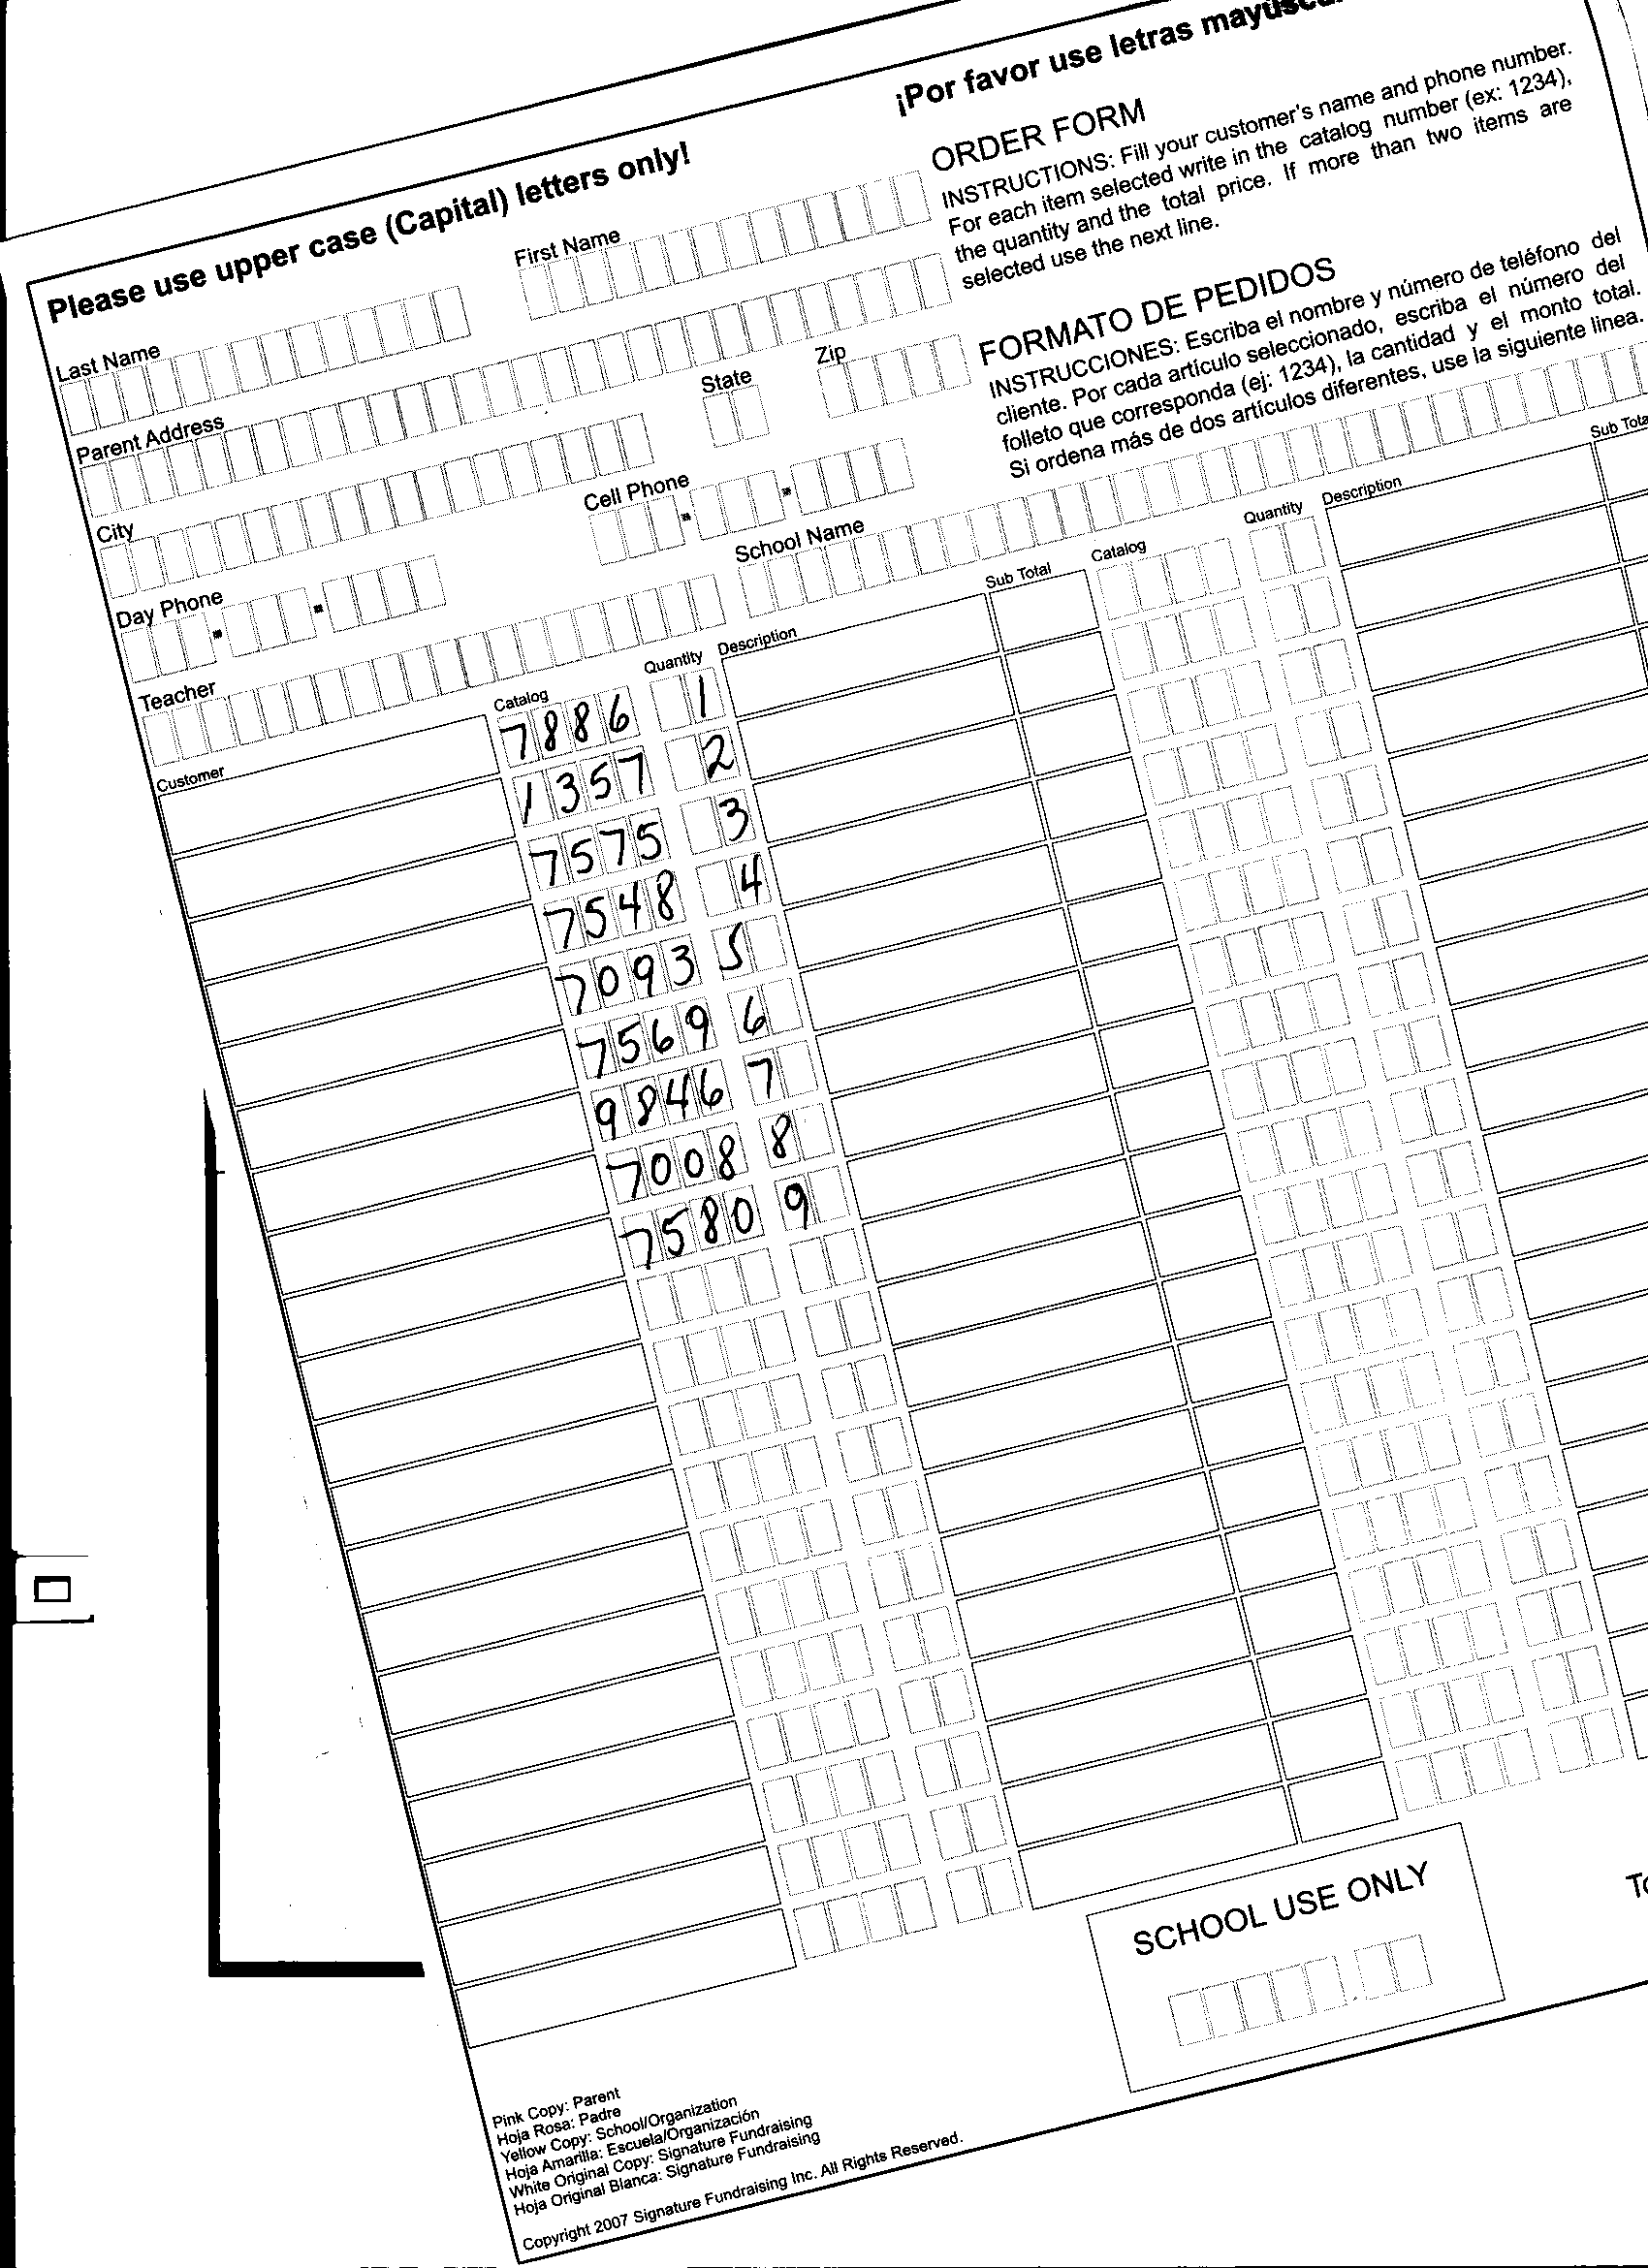 Please use upper case (Capital) letters only!
¡Por favor use letras
Last Name
First Name
Parent Address
City
State
Zip
Day Phone
Cell Phone
Teacher
School Name
ORDER FORM
INSTRUCTIONS: Fill your customer's name and phone number.
For each item selected write in the catalog number (ex: 1234),
the quantity and the total price. If more than two items are
selected use the next line.
FORMATO DE PEDIDOS
INSTRUCCIONES: Escriba el nombre y número de teléfono del
cliente. Por cada artículo seleccionado, escriba el número del
folleto que corresponda (ej: 1234), la cantidad y el monto total.
Si ordena más de dos artículos diferentes, use la siguiente linea.
Customer Catalog Quantity Description Sub Total Catalog Quantity Description Sub
7886 1
1357 2
7575 3
7548 4
7093 5
7569 6
9846 7
7008 8
7580 9
SCHOOL USE ONLY
Pink Copy: Parent
Hoja Rosa: Padre
Yellow Copy: School/Organization
Hoja Amarilla: Escuela/Organización
White Original Copy: Signature Fundraising
Hoja Original Blanca: Signature Fundraising
Copyright 2007 Signature Fundraising Inc. All Rights Reserved.